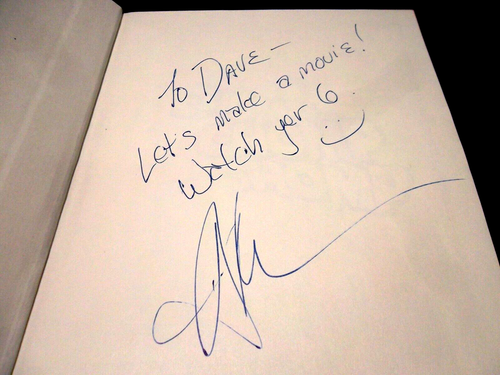 To DAVE —
Let's make a movie!
Watch yer 6.